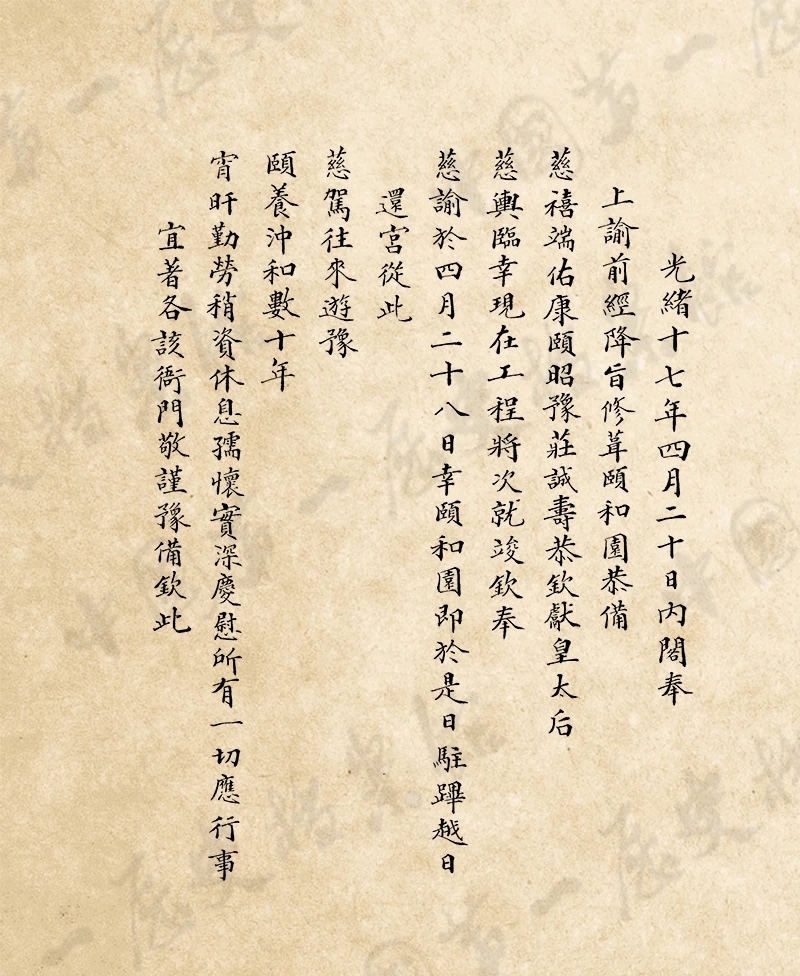 光緒十七年四月二十日內閣奉
上諭前經降旨修葺頤和園恭備
慈禧端佑康頤昭豫莊誠壽恭欽獻皇太后
慈輿臨幸現在工程將次就竣欽奉
慈諭於四月二十八日幸頤和園即於是日駐蹕越日
還宮從此
慈駕往來遊豫
頤養沖和數十年
宵旰勤勞稍資休息孺懷實深慶慰所有一切應行事
宜著各該衙門敬謹豫備欽此